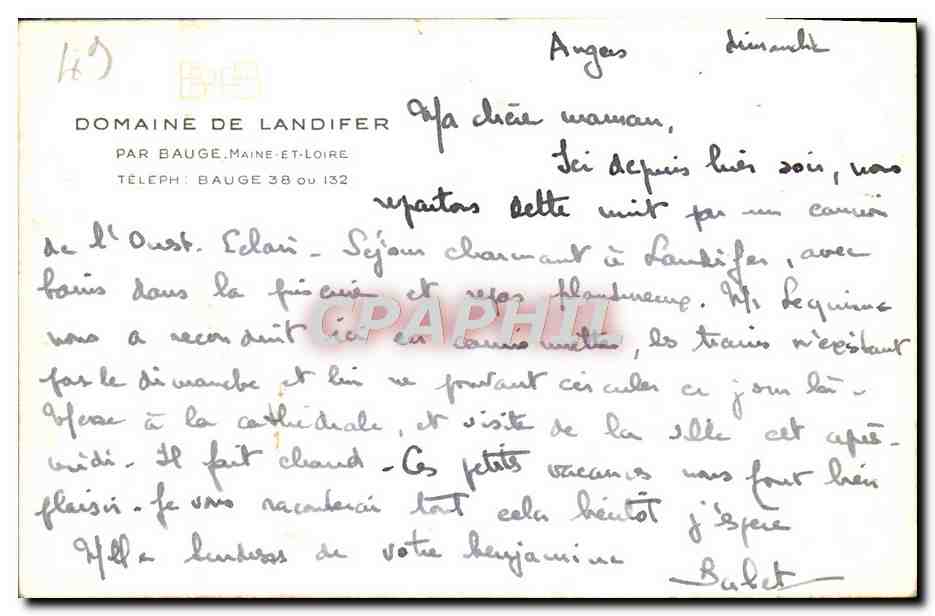 49
Angers dimanche
DOMAINE DE LANDIFER
PAR BAUGE, MAINE-ET-LOIRE
TÉLÉPH: BAUGE 38 OU 132
Ma chère maman,
Ici depuis hier soir, nous
repartons cette nuit par un camion
de l'Ouest-Eclair - Séjour charmant à Landifer, avec
bains dans la piscine et repas plantureux. Mr
nous a reconduit ici en, les trains n'existant
pas le dimanche et lui ne pouvant circuler ce jour là -
Messe à la cathédrale, et visite de la ville cet après-
midi. Il fait chaud - Ces petites vacances nous font bien
plaisir. Je vous raconterai tout cela bientôt j'espère
Mlle tendresses de votre benjamine
Babet
CPAPHIL